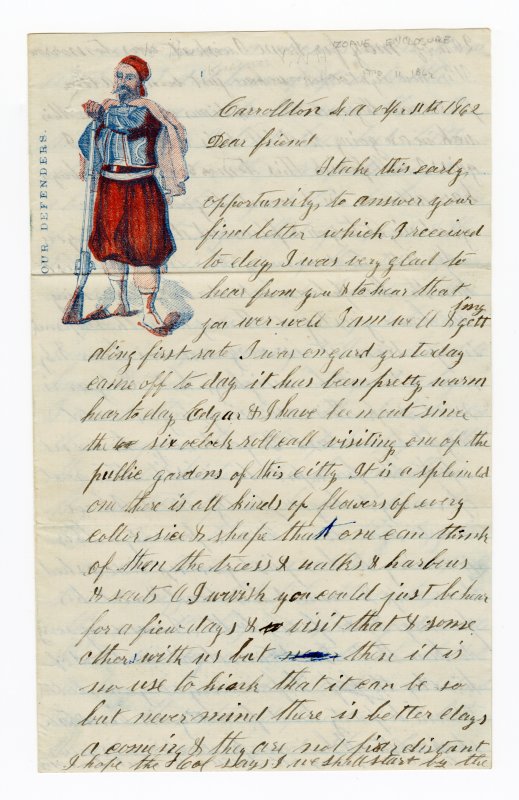 ZOAVE ENCLOSURE
OUR DEFENDERS.
Carrollton La Apr 11th 1862
Dear friend
I take this early
opportunity to answer your
kind letter which I received
to day I was very glad to
hear from you & to hear that
you wer well I am well & gett
ing
along first rate I was on gard yesterday
came off to day it has been pretty warm
hear to day Edgar & I have been out since
the six oclock roll call visiting one of the
public gardens of this citty It is a splendid
one there is all kinds of flowers of every
coller sice & shape that one can think
of then the trees & walks & harbers
& seats O I wish you could just be hear
for a fiew days & visit that & some
others with us but then it is
no use to think that it can be so
but never mind there is better days
a coming & they are not far distant
I hope the Col says we shall start by the